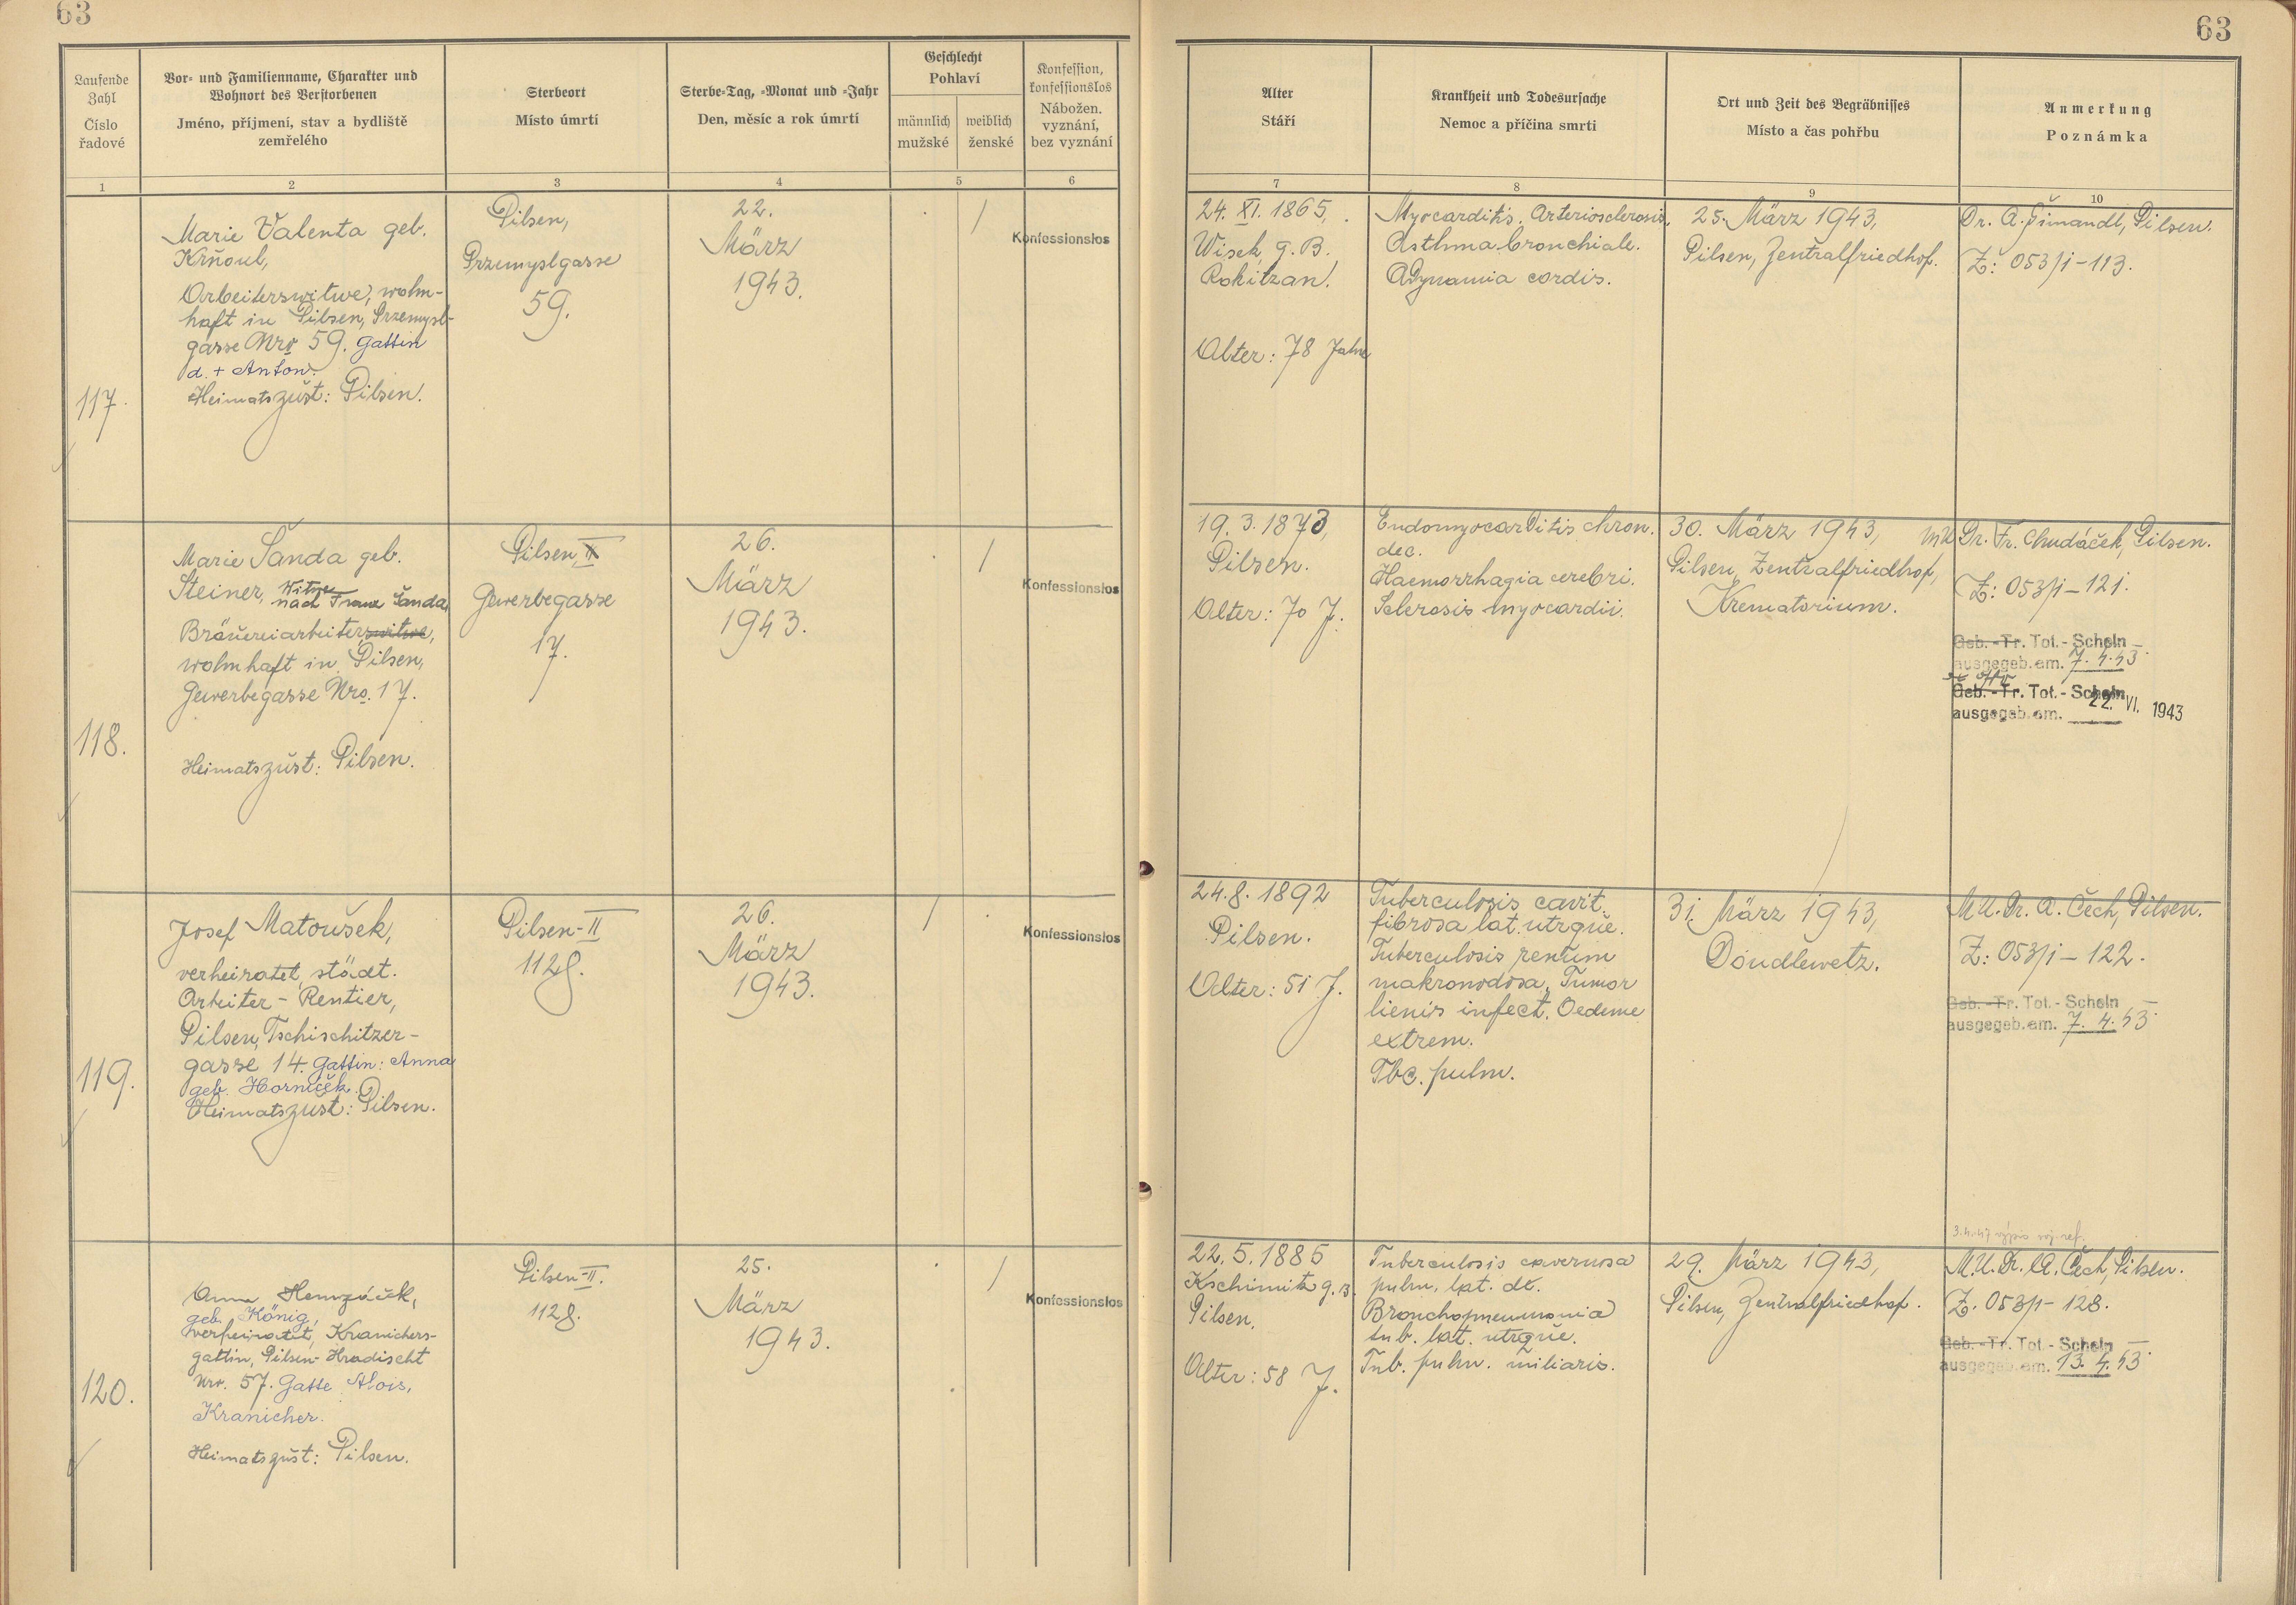 63
63
Laufende Zahl
Číslo řadové
Vor- und Familienname, Charakter und Wohnort des Verstorbenen
Jméno, příjmení, stav a bydliště zemřelého
Sterbeort
Místo úmrtí
Sterbe-Tag, -Monat und -Jahr
Den, měsíc a rok úmrtí
Geschlecht
Pohlaví
männlich
mužské
weiblich
ženské
Konfession, konfessionslos
Nábožen. vyznání, bez vyznání
Alter
Stáří
Krankheit und Todesursache
Nemoc a příčina smrti
Ort und Zeit des Begräbnisses
Místo a čas pohřbu
Anmerkung
Poznámka
1
2
3
4
5
6
7
8
9
10
117.
Marie Valenta geb.
Krňoul,
Arbeiterswitwe, wohn-
haft in Pilsen, Przemysl-
gasse Nro 59. Gattin
d. + Anton.
Heimatszust: Pilsen.
Pilsen,
Przemyslgasse
59.
22.
März
1943.
/
Konfessionslos
24. XI. 1865,
Wisek, g. B.
Rokitzan.
Alter: 78 Jahre
Myocarditis. Arteriosclerosis.
Asthma bronchiale.
Adynamia cordis.
25. März 1943,
Pilsen, Zentralfriedhof.
Dr. A. Šimandl, Pilsen.
Z: 053/1-113.
118.
Marie Šanda geb.
Steiner, Witwe
nach Franz Šanda,
Bräuereiarbeiterswitwe,
wohnhaft in Pilsen,
Gewerbegasse Nro. 17.
Heimatszust: Pilsen.
Pilsen, II
Gewerbegasse
17.
26.
März
1943.
/
Konfessionslos
19. 3. 1873,
Pilsen.
Alter: 70 J.
Endomyocarditis chron.
dec.
Haemorrhagia cerebri.
Sclerosis myocardii.
30. März 1943,
Pilsen, Zentralfriedhof,
Krematorium.
MU Dr. Fr. Chudáček, Pilsen.
Z: 053/1-121.
Geb.-Tr. Tot.-Schein
ausgegeb. am. 7. 4. 43
Geb.-Tr. Tot.-Schein
ausgegeb. am. 22. VI. 1943
119.
Josef Matoušek,
verheiratet, städt.
Arbeiter - Rentier,
Pilsen, Tschischitzer-
gasse 14. Gattin: Anna
geb. Horniček.
Heimatszust: Pilsen.
Pilsen-II
1128.
26.
März
1943.
/
Konfessionslos
24. 8. 1892
Pilsen.
Alter: 51 J.
Tuberculosis cavit.
fibrosa lat. utrque.
Tuberculosis renum
makronodosa, Tumor
lienis infect. Oedeme
extrem.
Tbc. pulm.
31. März 1943,
Doudlewetz.
MU. Dr. A. Čech, Pilsen.
Z: 053/1-122.
Geb.-Tr. Tot.-Schein
ausgegeb. am. 7. 4. 43
120.
Anna
geb. König,
verheiratet, Kranichers-
gattin, Pilsen-Hradischt
Nro. 57. Gatte Alois,
Kranicher.
Heimatszust: Pilsen.
Pilsen-II.
1128.
25.
März
1943.
/
Konfessionslos
22. 5. 1885
Kschimitz g. B.
Pilsen.
Alter: 58 J.
Tuberculosis cavernosa
pulm. lat. dc.
Bronchopneumonia
tub. lat. utrque.
Tub. pulm. miliaris.
29. März 1943,
Pilsen, Zentralfriedhof.
3.4.47 výpis
M.U. Dr. A. Čech, Pilsen.
Z. 053/1-128.
Geb.-Tr. Tot.-Schein
ausgegeb. am. 13. 4. 43